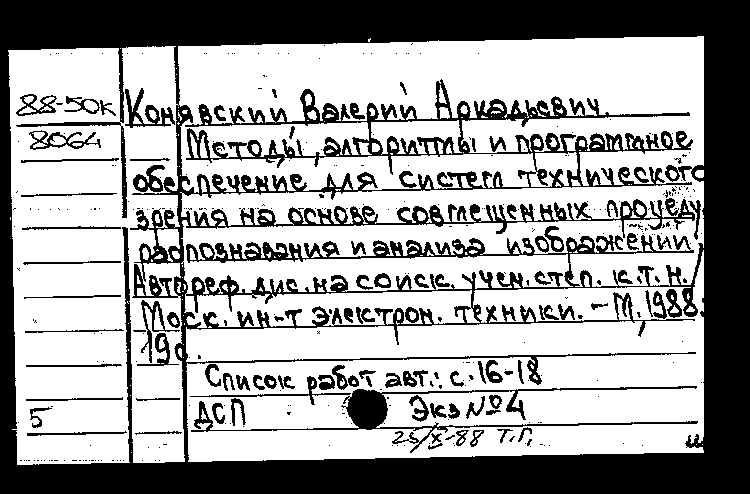 88-50к Конявский Валерий Аркадьевич.
8064 Методы, алгоритмы и программное
обеспечение для систем технического
зрения на основе совмещенных процеду
распознавания и анализа изображений.
Автореф. дис. на соиск. учен. степ. к.т.н. /
Моск. ин-т электрон. техники. – М., 1988.
19с.
Список работ авт.: с. 16-18
5 ДСП Экз №4
25/X-88 Т.Г.